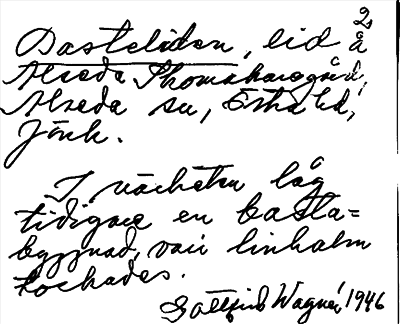 2,
Basteliden, lid å
Alseda Thomasbacgård,
Alseda sn, Östra hd,
Jönk.
I närheten låg
tidigare en basta=
byggnad, vari linhalm
torkades.
Gottfrid Wagnér 1946